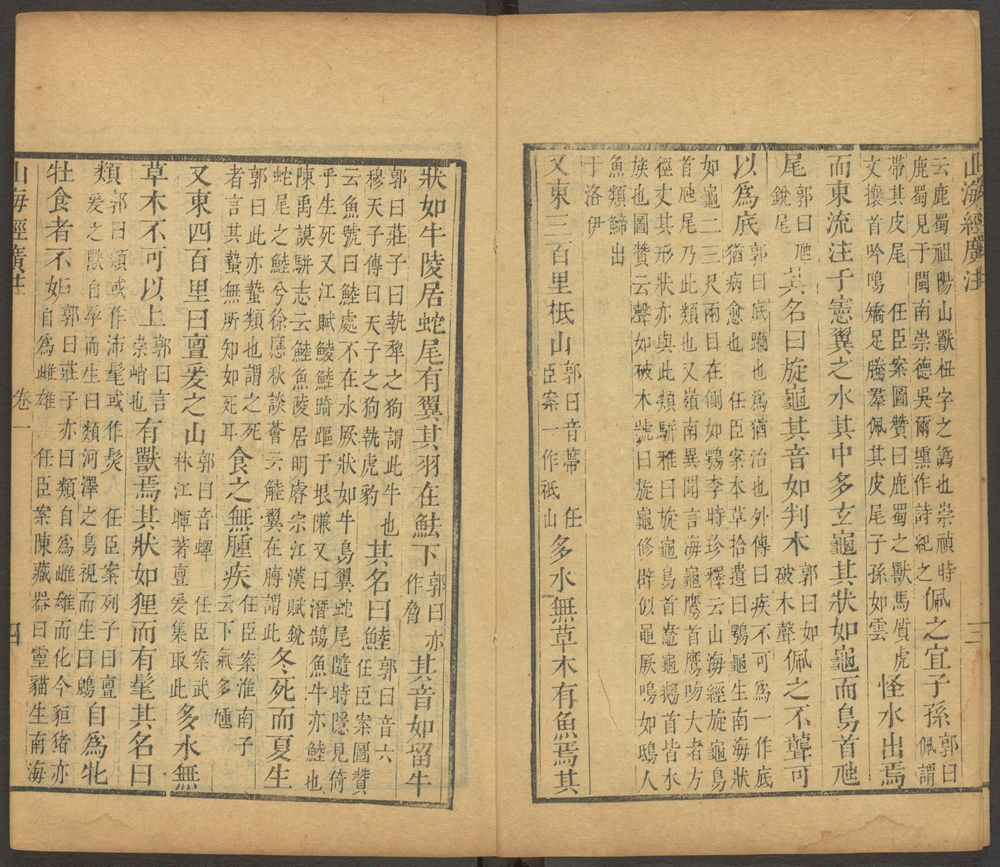 山海經廣注　三
云鹿蜀祖陽山獸杻字之譌也崇禎時
鹿蜀見于閩南崇德吳爾壎作詩紀之
佩之宜子孫
郭曰
佩謂
帶其皮尾　任臣案圖贊曰鹿蜀之獸馬質虎
文攘首吟鳴矯足騰羣佩其皮尾子孫如雲
怪水出焉
而東流注于憲翼之水其中多玄龜其狀如龜而鳥首虺
尾
郭曰虺
銳尾
其名曰旋龜其音如判木
郭曰如
破木聲
佩之不聾可
以爲底
郭曰底躪也爲猶治也外傳曰疾不可爲一作底
猶病愈也　任臣案本草拾遺曰鶚龜生南海狀
如龜二三尺兩目在側如鶚李時珍釋云山海經旋龜鳥
首虺尾乃此類也又嶺南異聞言海龜鷹首鷹吻大者方
徑丈其形狀亦與此類駢雅曰旋龜鳥首鼈龜鶂首皆水
族也圖贊云聲如破木號曰旋龜修辟似黽厥鳴如鴟人
魚類鯑出
于洛伊
又東三百里柢山
郭曰音蔕　任
臣案一作祇山
多水無草木有魚焉其
狀如牛陵居蛇尾有翼其羽在魼下
郭曰亦
作脅
其音如留牛
郭曰莊子曰執犂之狗謂此牛也
穆天子傳曰天子之狗執虎豹
其名曰鯥
郭曰音六
任臣案圖贊
云魚號曰鯥處不在水厥狀如牛鳥翼蛇尾隨時隱見倚
乎生死又江賦鯪鯥踦䠊于垠隒又曰潛鵠魚牛亦鯥也
陳禹謨駢志云鯥魚陵居明廖宗江漢賦銳
蛇尾之鯥兮徐應秋談薈云鯥翼在膊謂此
冬死而夏生
郭曰此亦蟄類也謂之死
者言其蟄無所知如死耳
食之無腫疾
任臣案淮南子
云下氣多尰
又東四百里曰亶爰之山
郭曰音蟬　任臣案武
林江暉著亶爰集取此
多水無
草木不可以上
郭曰言
崇峭也
有獸焉其狀如狸而有髦其名曰
類
郭曰類或作沛髦或作髮　任臣案列子曰亶
爰之獸自孕而生曰類河澤之鳥視而生曰鶂
自爲牝
牡食者不妒
郭曰莊子亦曰類自爲雌雄而化今貆猪亦
自爲雌雄　任臣案陳藏器曰靈貓生南海
山海經廣注　卷一　四